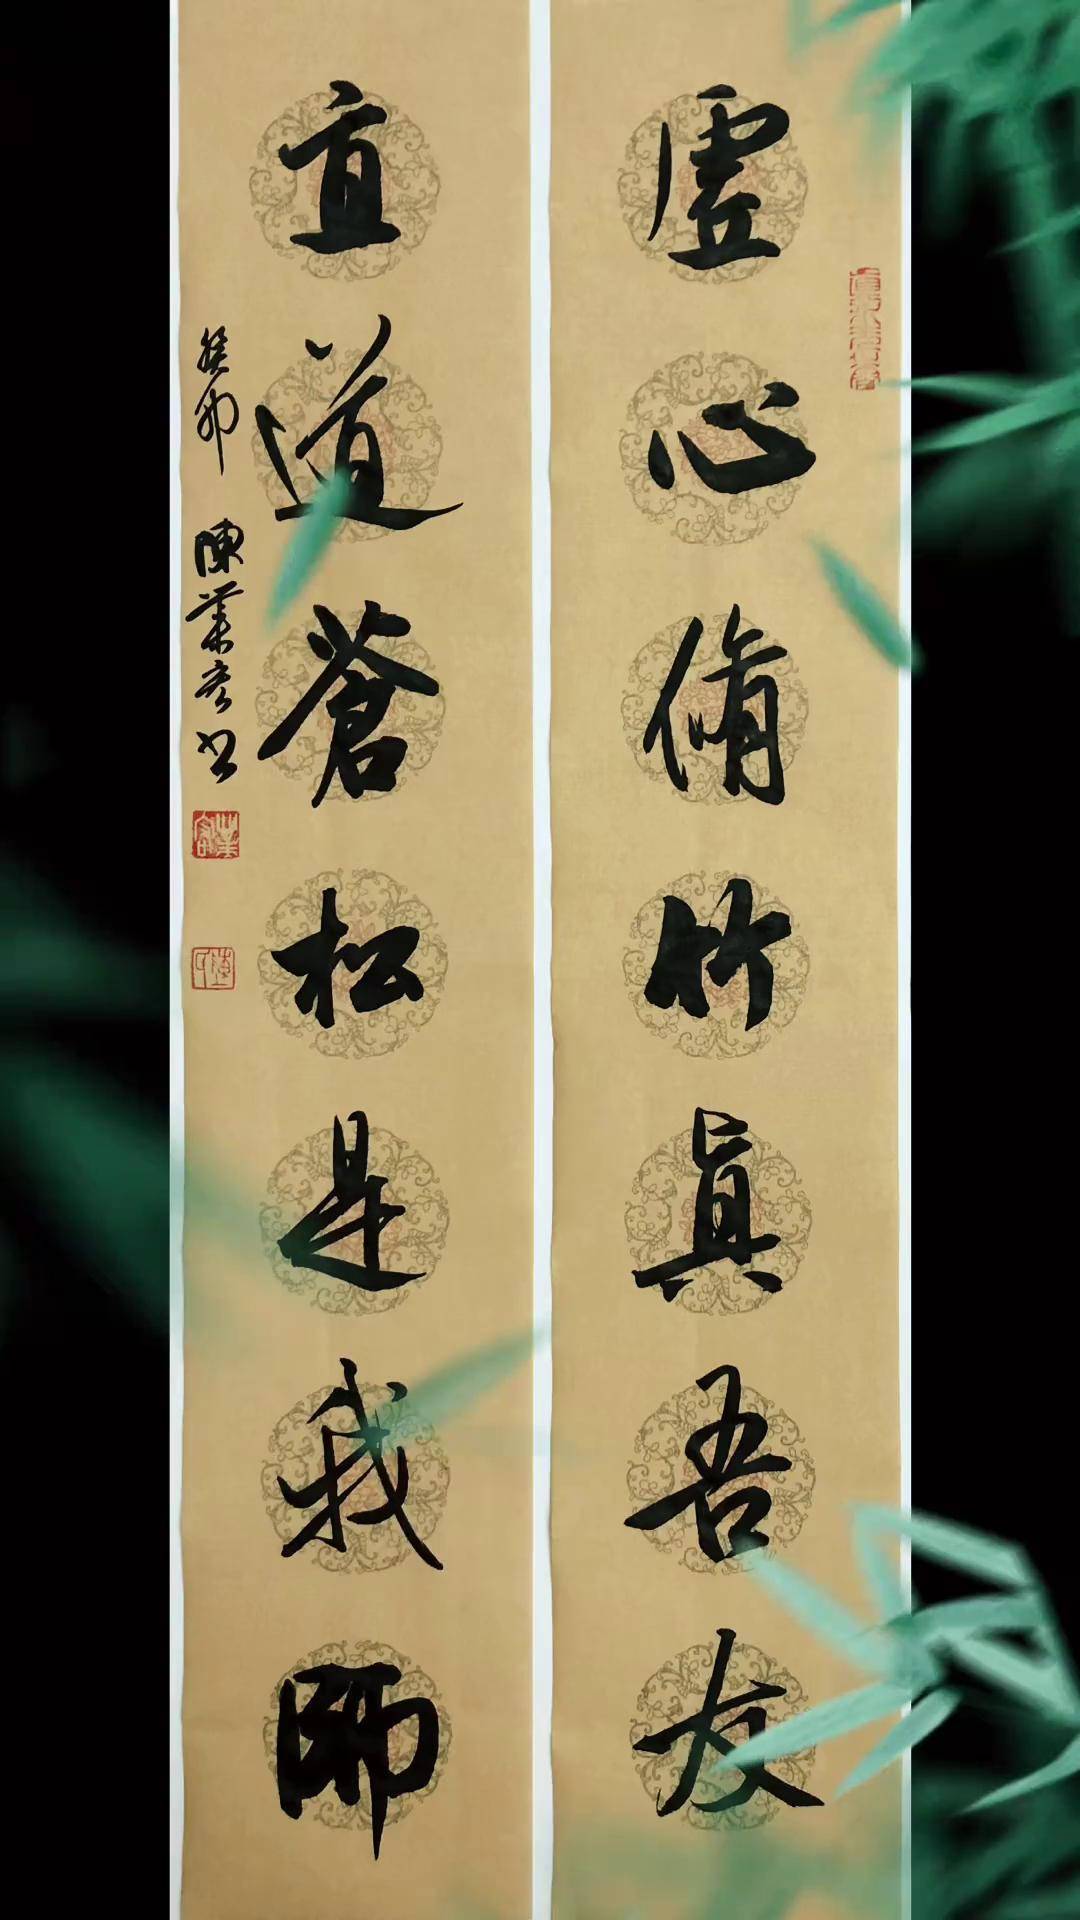 虚心脩竹真吾友
直道蒼松是我師
癸卯 陳業彥书